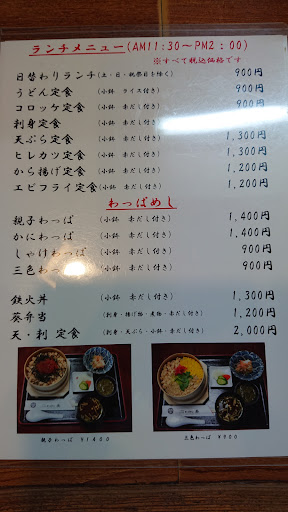 ランチメニュー(AM11:30～PM2:00)
※すべて税込価格です
日替わりランチ(土・日・祝祭日を除く) 900円
うどん定食 (小鉢 ライス付き) 900円
コロッケ定食 (小鉢 赤だし付き) 900円
刺身定食 (小鉢 赤だし付き)
天ぷら定食 (小鉢 赤だし付き) 1,300円
ヒレカツ定食 (小鉢 赤だし付き) 1,300円
から揚げ定食 (小鉢 赤だし付き) 1,200円
エビフライ定食 (小鉢 赤だし付き) 1,200円
わっぱめし
親子わっぱ (小鉢 赤だし付き) 1,400円
かにわっぱ (小鉢 赤だし付き) 1,400円
しゃけわっぱ (小鉢 赤だし付き) 900円
三色わっぱ (小鉢 赤だし付き) 900円
鉄火丼 (小鉢 赤だし付き) 1,300円
葵弁当 (刺身・揚げ物・煮物・赤だし付き) 1,200円
天・刺 定食 (刺身・天ぷら・小鉢・赤だし付き) 2,000円
親子わっぱ ¥1400
三色わっぱ ¥900